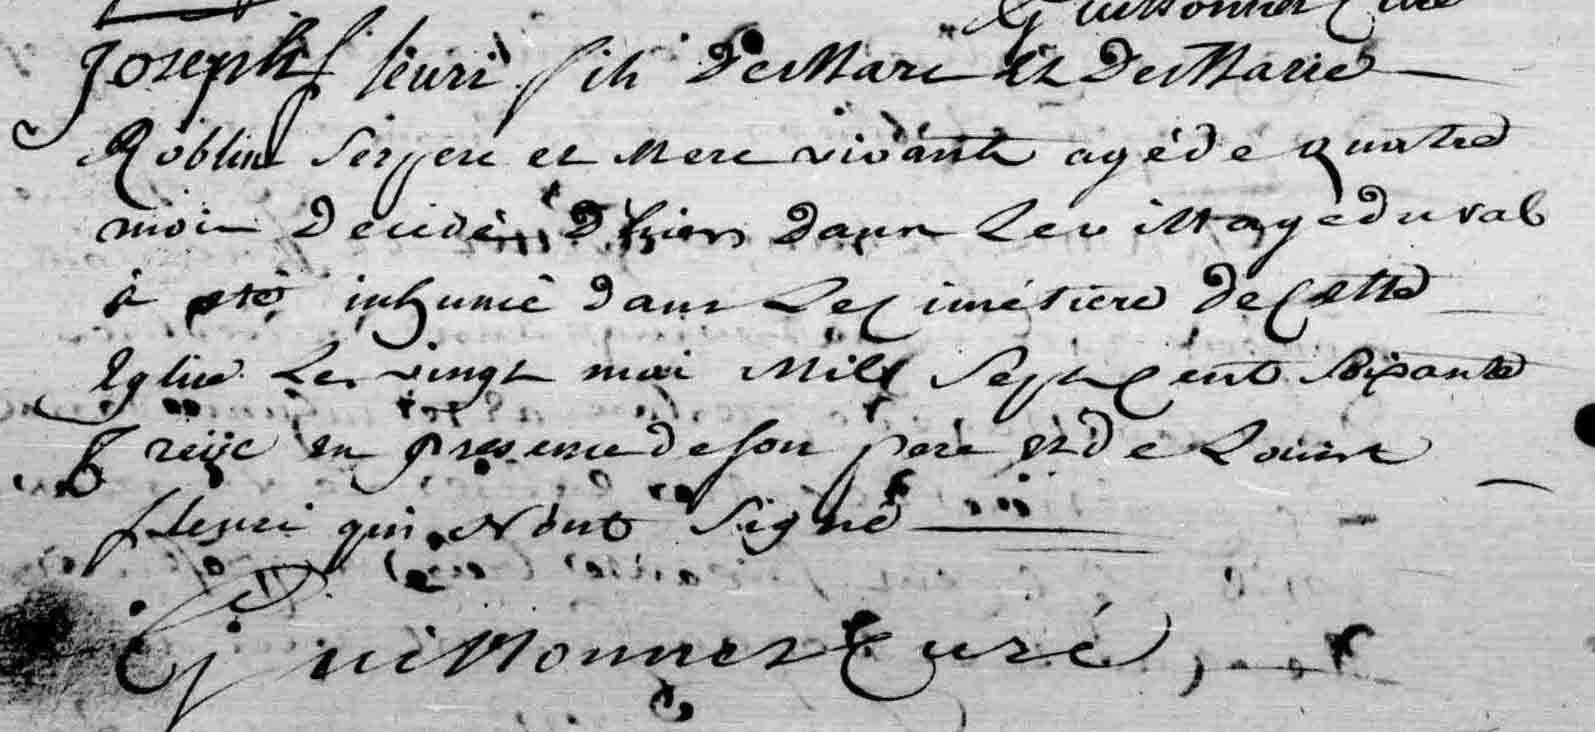 Guittonnet Curé
Joseph fleuri fils de Marc et de Marie
Roblin ses pere et Mere vivants agé de quatre
mois decedé d'hier dans le village du val
à eté inhumé dans le cimétiere de cette
Eglise le vingt mai Mil sept cent soixante
treize en presence de son pere et de Louis
fleuri qui N'ont signé
Guittonnet Curé